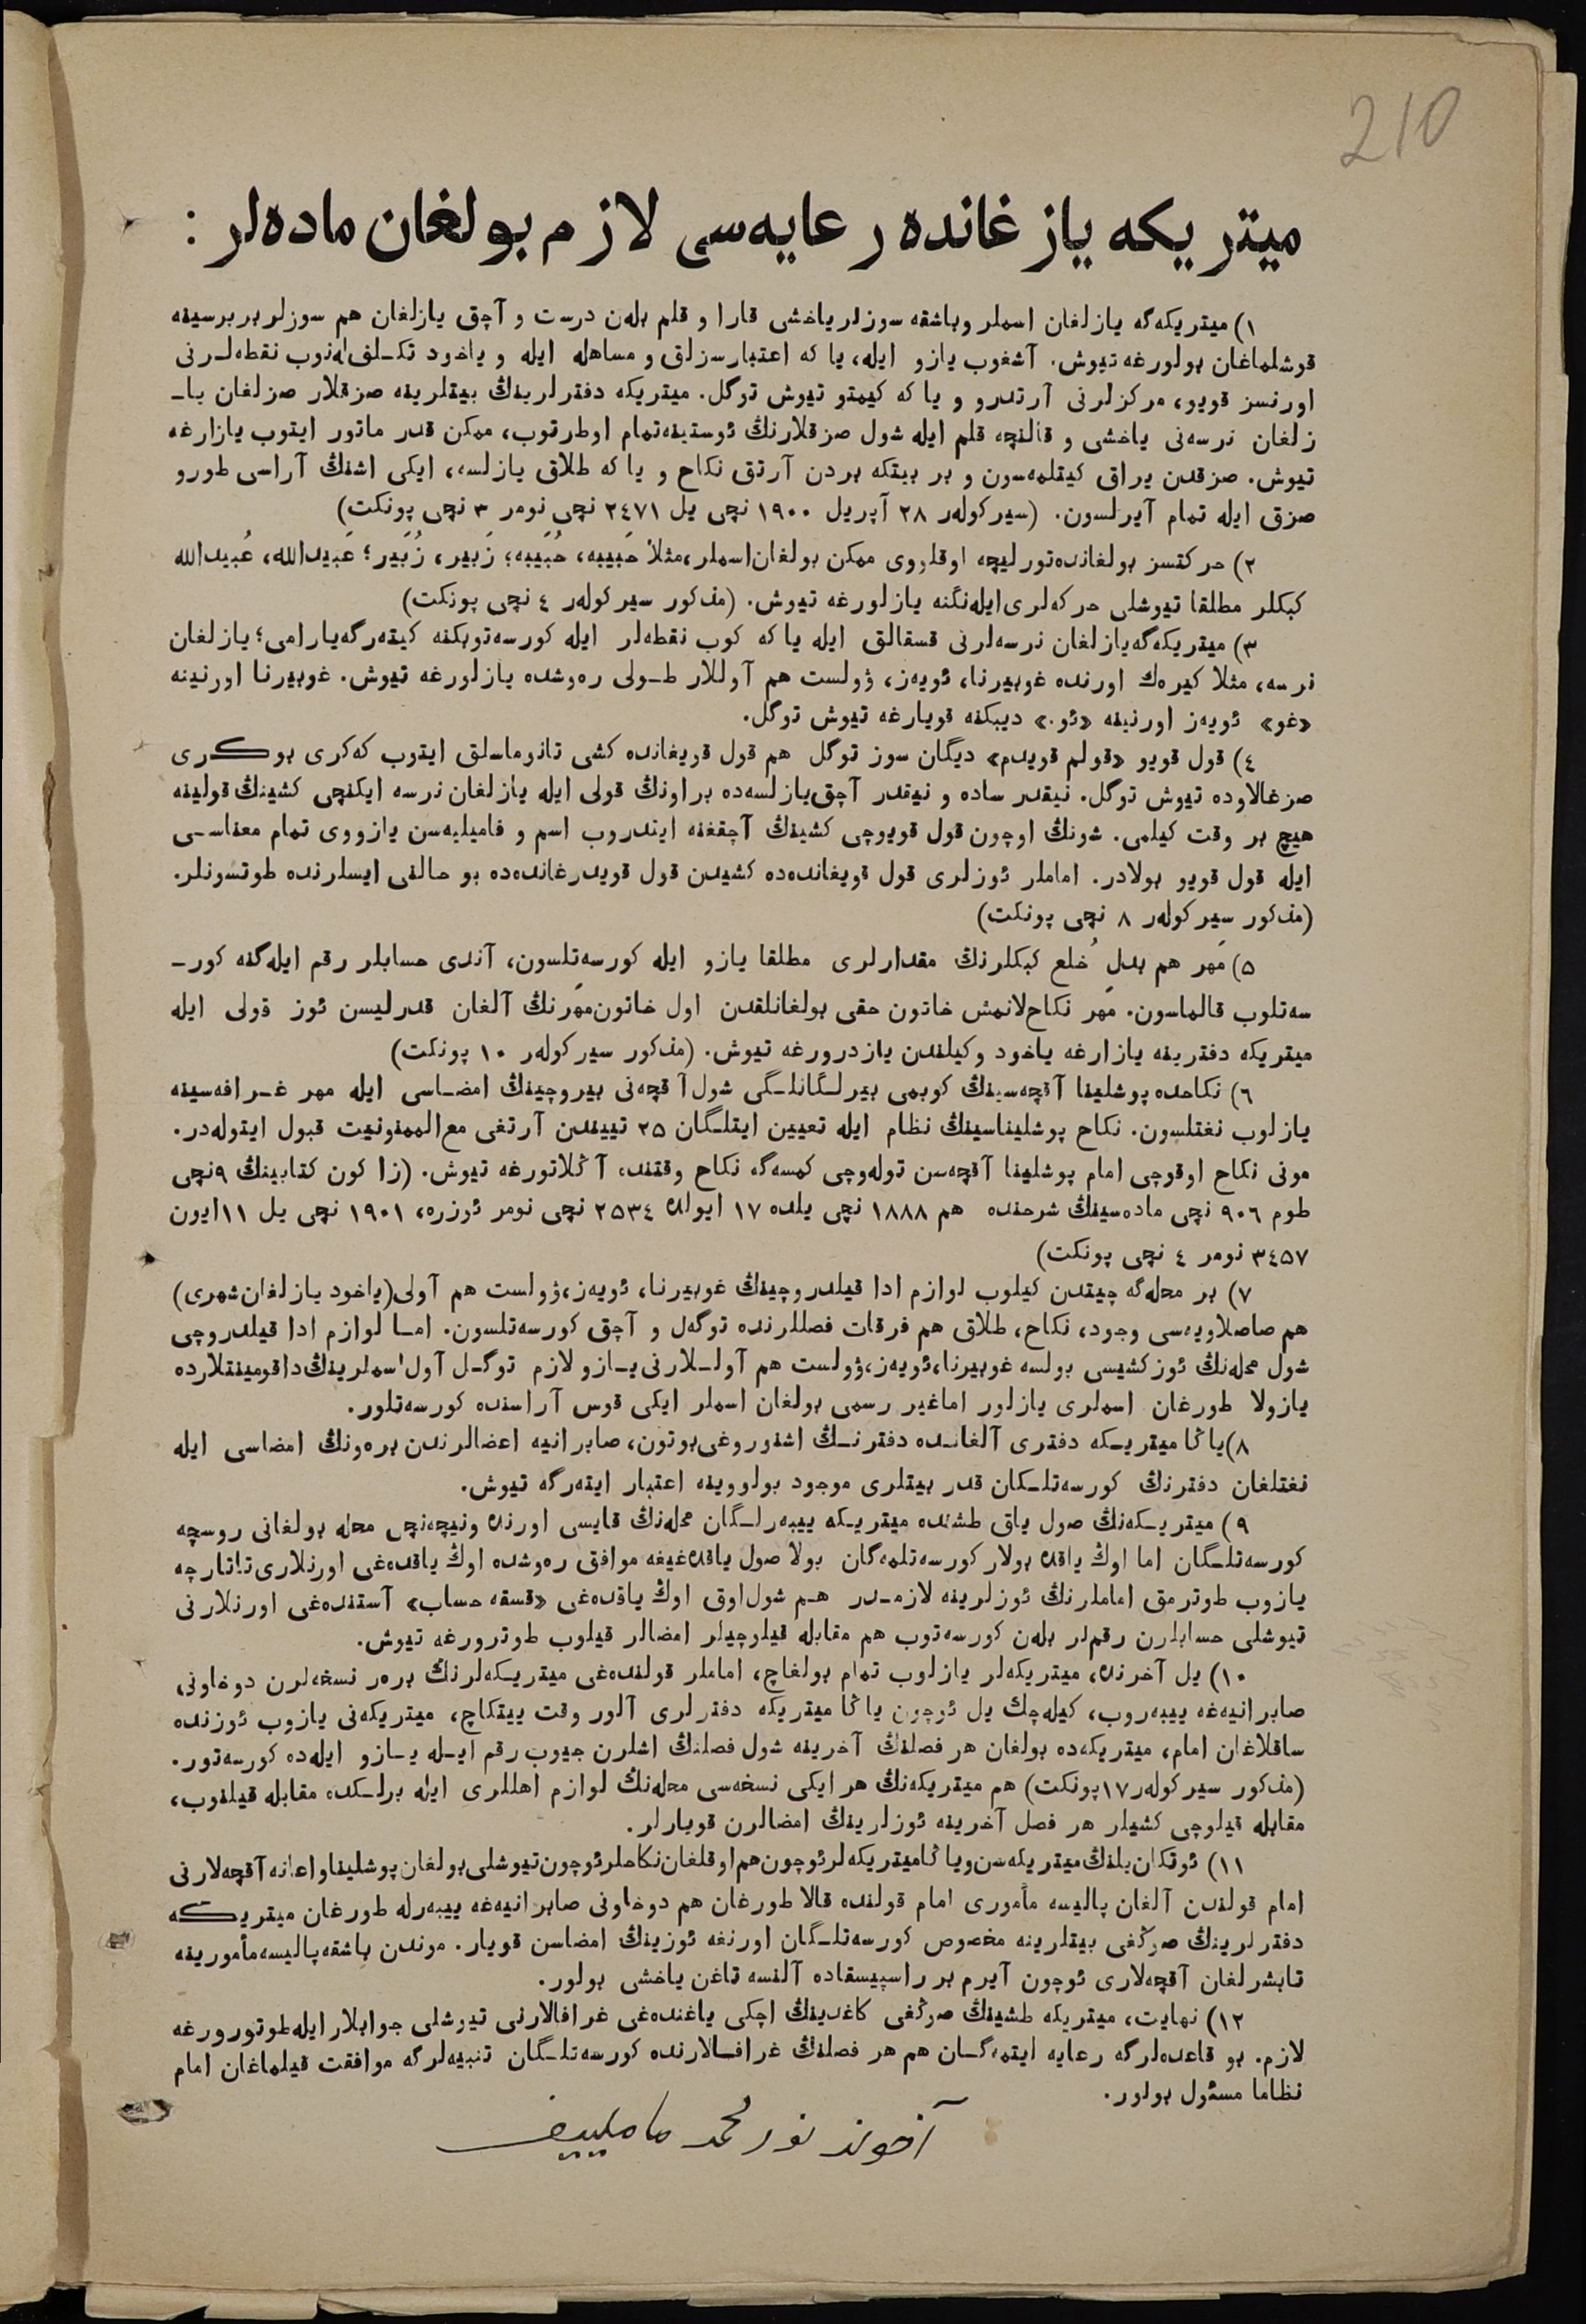 210
میتریكه یازغانده رعایه‌سی لازم بولغان ماده‌لر :
۱) میتریكه‌گه یازلغان اسملر وباشقه سوزلر یاخشی قارا و قلم بله‌ن درست و آچق یازلغان هم سوزلر بربرسینه
قوشلماغان بولورغه تیوش. آشغوب یازو ایله، یا كه اعتبارسزلق و مساهله ایله و یاخود تكـلف له‌نوب نقطه‌لـرنی
اورنسز قویو، مركزلرنی آرتدرو و یا كه كیمتو تیوش توگل. میتریكه دفترلرینڭ بیتلرینه صزقلار صزلغان یاـ
زلغان نرسه‌نی یاخشی و قالنچه قلم ایله شول صزقلارنڭ ئوستینه‌تمام اوطرتوب، ممكن قدر ماتور ایتوب یازارغه
تیوش. صزقدن یراق كیتلمه‌سون و بر بیتكه بردن آرتق نكاح و یا كه طلاق یازلسه، ایكی اشنڭ آراسی طورو
صزق ایله تمام آیرلسون. (سیركوله‌ر ۲۸ آپریل ۱۹۰۰ نچی یل ۲٤۷۱ نچی نومر ۳ نچی پونكت)
۲) حركتسز بولغانده‌تورلیچه اوقلووی ممكن بولغان‌اسملر،مثلاً حَبیبه، حُبَیبه؛ زَبیر، زُبَیر؛ عَبیدالله، عُبیدالله
كبكلر مطلقا تیوشلی حركه‌لری‌ایله‌نگنه یازلورغه تیوش. (مذكور سیركوله‌ر ٤ نچی پونكت)
۳) میتریكه‌گه‌یازلغان نرسه‌لرنی قسقالق ایله یا كه كوب نقطه‌لر ایله كورسه‌توبكنه كیته‌رگه‌یارامی؛ یازلغان
نرسه، مثلا كیره‌ك اورنده غوبیرنا، ئویه‌ز، ۋولست هم آوللار طـولی ره‌وشده یازلورغه تیوش. غوبیرنا اورنینه
«غو» ئویه‌ز اورنینه «ئو.» دیبكنه قویارغه تیوش توگل.
٤) قول قویو «قولم قویدم» دیگان سوز توگل هم قول قویغانده كشی تانوماسلق ایتوب كه‌كری بوكـری
صزغالاوده تیوش توگل. نیقدر ساده و نیقدر آچق‌یازلسه‌ده براونڭ قولی ایله یازلغان نرسه ایكنچی كشینڭ قولینه
هیچ بر وقت كیلمی. شونڭ اوچون قول قویوچی كشینڭ آچقغنه ایتدروب اسم و فامیلیه‌سن یازووی تمام معناسـی
ایله قول قویو بولادر. اماملر ئوزلری قول قویغانده‌ده كشیدن قول قویدرغانده‌ده بو حالنی ایسلرنده طوتسونلر.
(مذكور سیركوله‌ر ۸ نچی پونكت)
۵) مَهر هم بدلِ خُلع كبكلرنڭ مقدارلری مطلقا یازو ایله كورسه‌تلسون، آندی حسابلر رقم ایله‌گنه كورـ
سه‌تلوب قالماسون. مَهر نكاح‌لانمش خاتون حقی بولغانلقدن اول خاتون‌مَهرنڭ آلغان قدرلیسن ئوز قولی ایله
میتریكه دفترینه یازارغه یاخود وكیلندن یازدرورغه تیوش. (مذكور سیركوله‌ر ۱۰ پونكت)
۶) نكاحده پوشلینا آقچه‌سینڭ كوبمی بیرلـگانلـگی شول‌آقچه‌نی بیروچینڭ امضـاسی ایله مهر غـرافه‌سینه
یازلوب نغتلسون. نكاح پوشلیناسینڭ نظام ایله تعیین ایتلـگان ۲۵ تییندن آرتغی مع‌الممنونیت قبول ایتوله‌در.
مونی نكاح اوقوچی امام پوشلینا آقچه‌سن توله‌وچی كمسه‌گه نكاح وقتنده آڭلاتورغه تیوش. (زاكون كتابینڭ ۹نچی
طوم ۹۰۶ نچی ماده‌سینڭ شرحنده هم ۱۸۸۸ نچی یلده ۱۷ ایولده ۲۵۳٤ نچی نومر ئوزره، ۱۹۰۱ نچی یل ۱۱ایون
۳٤۵۷ نومر ٤ نچی پونكت)
۷) بر محله‌گه چیتدن كیلوب لوازم ادا قیلدروچینڭ غوبیرنا، ئویه‌ز،ۋولست هم آولی(یاخود یازلغان‌شهری)
هم صاصلاویه‌سی وجود، نكاح، طلاق هم فرقات فصللرنده توگه‌ل و آچق كورسه‌تلسون. امـا لوازم ادا قیلدروچی
شول محله‌نڭ ئوز كشیسی بولسه غوبیرنا،ئویه‌ز،ۋولست هم آولـلارنی‌یـازو لازم توگـل آول اسملرینڭ‌داقومینتلارده
یازولا طورغان اسملری یازلور اماغیر رسمی بولغان اسملر ایكی قوس آراسنده كورسه‌تلور.
۸)یاڭا میتریـكه دفتری آلغانـده دفترنـڭ اشنوروغی‌بوتون، صابرانیه اعضالرندن بره‌ونڭ امضاسی ایله
نغتلغان دفترنڭ كورسه‌تلـگان قدر بیتلری موجود بولووینه اعتبار ایته‌رگه تیوش.
۹) میتریـكه‌نڭ صول یاق طشنده میتریـكه ییبه‌رلـگان محله‌نڭ قایسی اورنده ونیچه‌نچی محله بولغانی روسچه
كورسه‌تلـگان اما اوڭ یاقده بولار كورسه‌تلمه‌گان بولا صول یاقده‌غیغه موافق ره‌وشده اوڭ یاقده‌غی اورنلاری‌تاتارچه
یازوب طوترمق اماملرنڭ ئوزلرینه لازمـدر هـم شول‌اوق اوڭ یاقده‌غی «قسقه حساب» آستنده‌غی اورنلارنی
تیوشلی حسابلرن رقم‌لر بله‌ن كورسه‌توب هم مقابله قیلوچیلر امضالر قیلوب طوترورغه تیوش.
۱۰) یل آخرنده، میتریكه‌لر یازلوب تمام بولغاچ، اماملر قولنده‌غی میتریـكه‌لرنڭ بره‌ر نسخه‌لرن دوخاونی
صابرانیه‌غه ییبه‌روب، كیله‌چك یل ئوچون یاڭا میتریكه دفترلری آلور وقت ییتكاچ، میتریكه‌نی یازوب ئوزنده
ساقلاغان امام، میتریكه‌ده بولغان هر فصلنڭ آخرینه شول فصلنڭ اشلرن جیوب رقم ایـله یـازو ایله‌ده كورسه‌تور.
(مذكور سیركوله‌ر۱۷پونكت) هم میتریكه‌نڭ هر ایكی نسخه‌سی محله‌نڭ لوازم اهللری ایله برلـكده مقابله قیلنوب،
مقابله قیلوچی كشیلر هر فصل آخرینه ئوزلرینڭ امضالرن قویارلر.
۱۱) ئوتكان‌یلنڭ‌میتریكه‌سن‌ویاڭامیتریكه‌لرئوچون‌هم‌اوقلغان‌نكاحلرئوچون‌تیوشلی‌بولغان‌پوشلیناواعانه‌آقچه‌لارنی
امام قولندن آلغان پالیسه مأموری امام قولنده قالا طورغان هم دوخاونی صابرانیه‌غه ییبه‌رله طورغان میتریكـه
دفترلرینڭ صوڭغی بیتلرینه مخصوص كورسه‌تلـگان اورنغه ئوزینڭ امضاسن قویار. موندن باشقه‌پالیسه‌مأمورینه
تابشرلغان آقچه‌لاری ئوچون آیرم بر راسپیسقاده آلنسه تاغن یاخشی بولور.
۱۲) نهایت، میتریكه طشینڭ صوڭغی كاغدینڭ اچكی یاغنده‌غی غرافالارنی تیوشلی جوابلار ایله‌طوتورورغه
لازم. بو قاعده‌لرگه رعایه ایتمه‌گـان هم هر فصلنڭ غرافـالارنده كورسه‌تلـگان تنبیه‌لرگه موافقت قیلماغان امام
نظاما مسئول بولور.
آخوند نورمحمد ماملییف